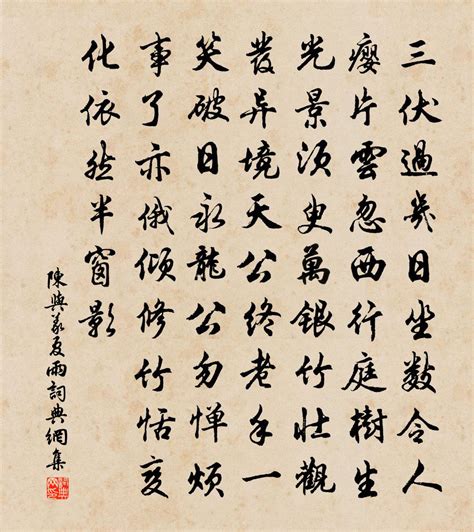 三伏過幾日坐數令人
癭片雲忽西行庭樹生
光景須臾萬銀竹壯觀
發异境天公終老手一
笑破日永龍公勿憚煩
事了亦俄傾修竹恬變
化依然半窗影
陳與義夏雨詞典網集